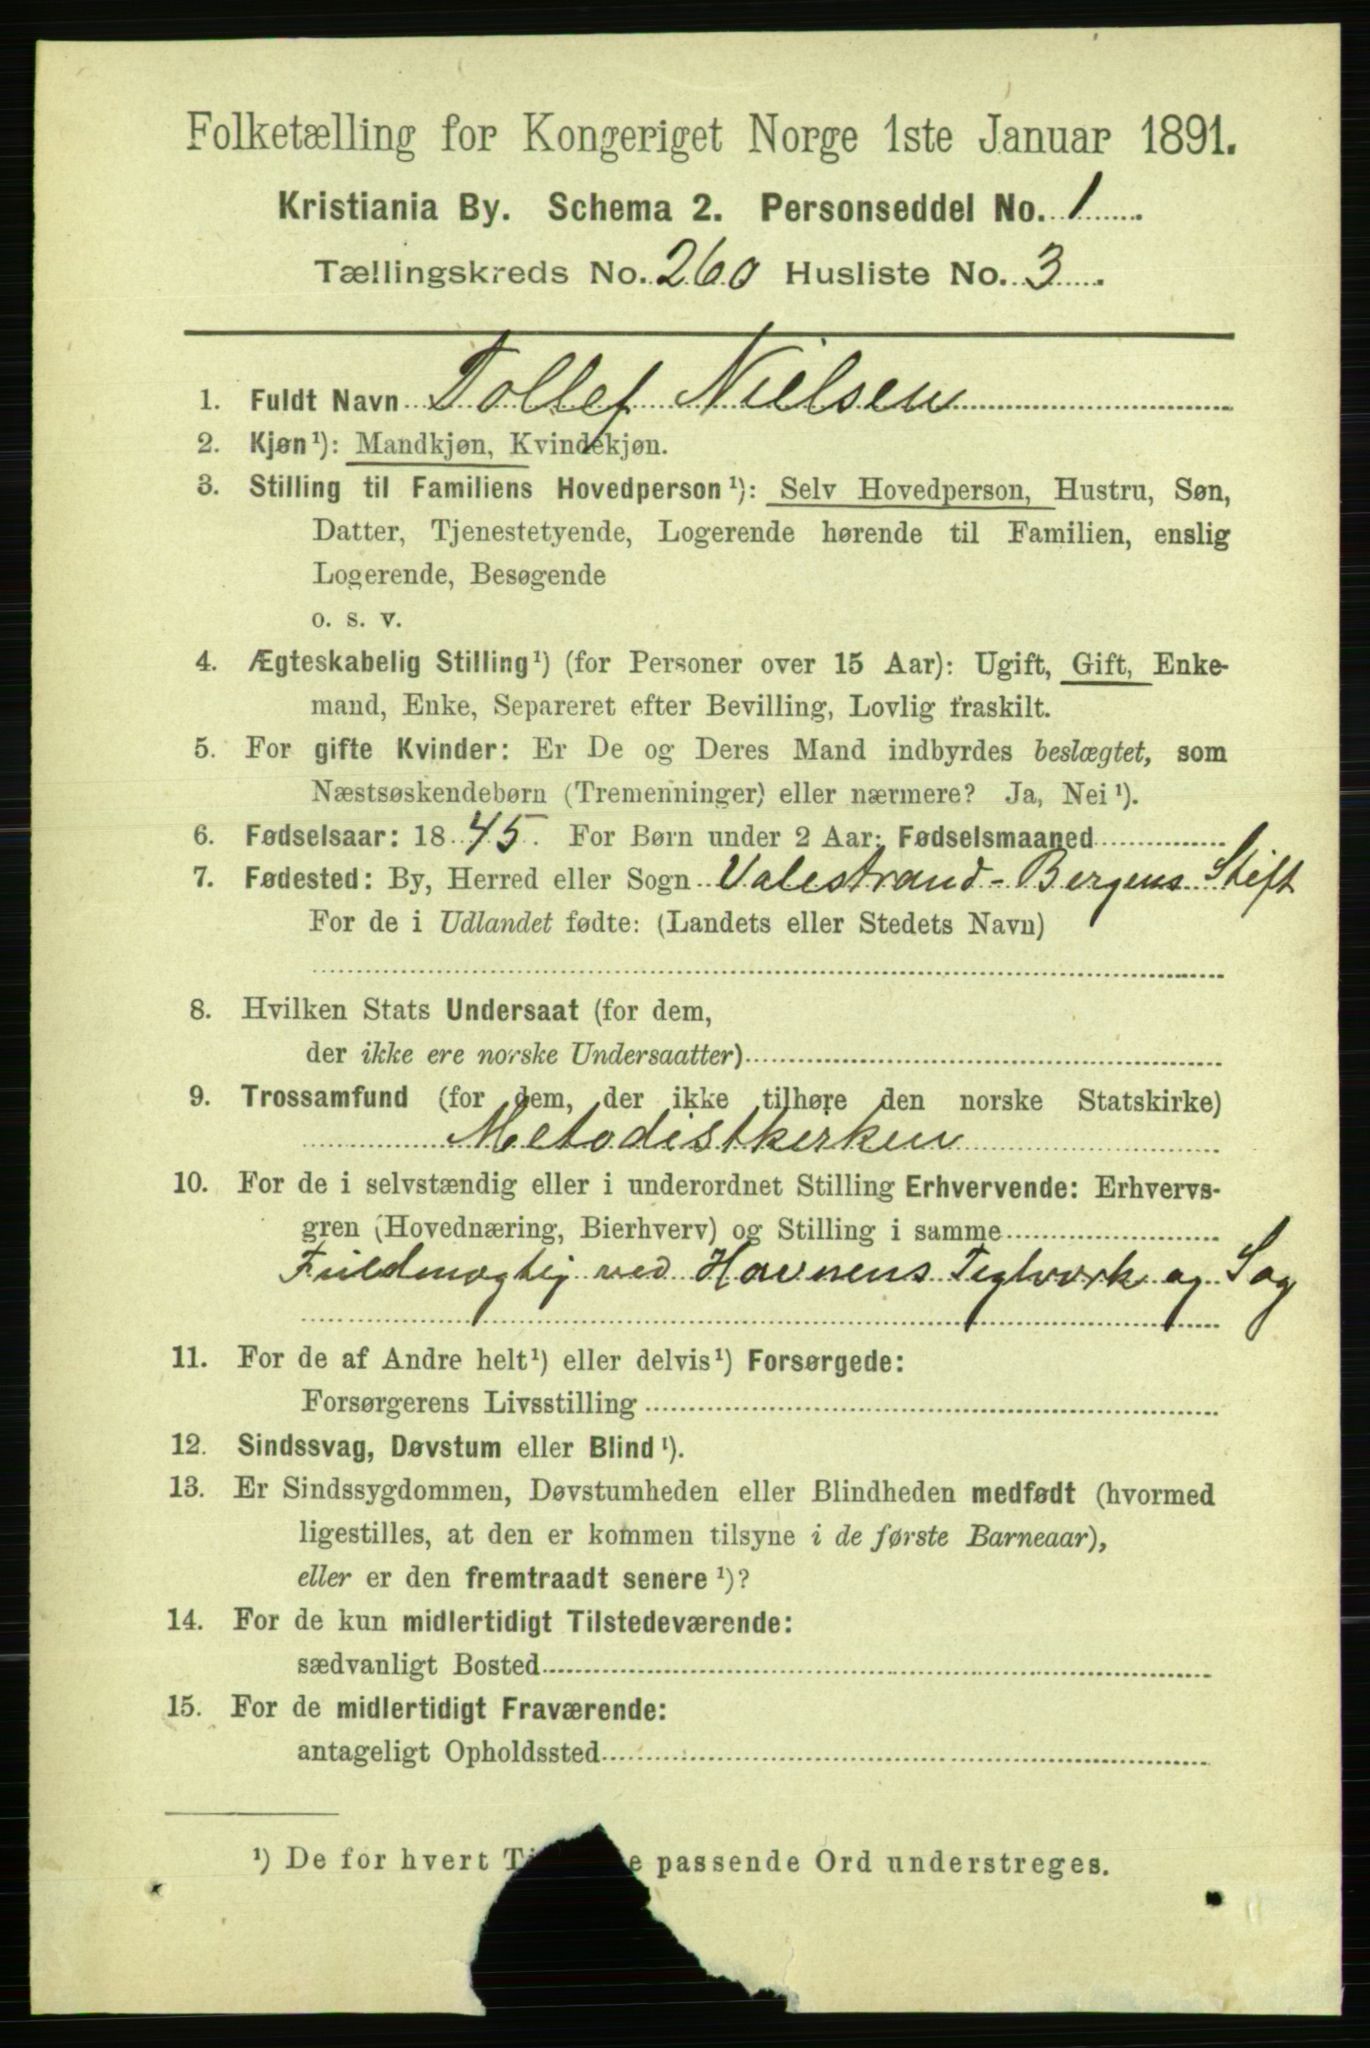 Folketælling for Kongeriget Norge 1ste Januar 1891.
Kristiania By. Schema 2. Personseddel No. 1
Tællingskreds No. 260 Husliste No. 3.
1. Fuldt Navn Tollef Nielsen
2. Kjøn¹): Mandkjøn, Kvindekjøn.
3. Stilling til Familiens Hovedperson¹): Selv Hovedperson, Hustru, Søn,
Datter, Tjenestetyende, Logerende hørende til Familien, enslig
Logerende, Besøgende
o. s. v.
4. Ægteskabelig Stilling¹) (for Personer over 15 Aar): Ugift, Gift, Enke-
mand, Enke, Separeret efter Bevilling, Lovlig fraskilt.
5. For gifte Kvinder: Er De og Deres Mand indbyrdes beslægtet, som
Næstsøskendebørn (Tremenninger) eller nærmere? Ja, Nei¹).
6. Fødselsaar: 1845. For Børn under 2 Aar: Fødselsmaaned
7. Fødested: By, Herred eller Sogn Valestrand - Bergens Stift
For de i Udlandet fødte: (Landets eller Stedets Navn)
8. Hvilken Stats Undersaat (for dem,
der ikke ere norske Undersaatter)
9. Trossamfund (for dem, der ikke tilhøre den norske Statskirke)
Metodistkirken
10. For de i selvstændig eller i underordnet Stilling Erhvervende: Erhvervs-
gren (Hovednæring, Bierhverv) og Stilling i samme
Fuldmægtig ved Havnens Teglverk og Sag
11. For de af Andre helt¹) eller delvis¹) Forsørgede:
Forsørgerens Livsstilling
12. Sindssvag, Døvstum eller Blind¹).
13. Er Sindssygdommen, Døvstumheden eller Blindheden medfødt (hvormed
ligestilles, at den er kommen tilsyne i de første Barneaar),
eller er den fremtraadt senere¹)?
14. For de kun midlertidigt Tilstedeværende:
sædvanligt Bosted
15. For de midlertidigt Fraværende:
antageligt Opholdssted
¹) De for hvert passende Ord understreges.